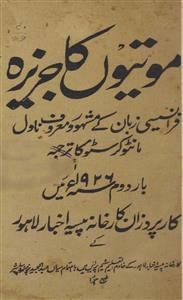 موتیوں کا جزیرہ
فرانسیسی زبان کے مشہور و معروف ناول
مانٹو کرسٹو کا ترجمہ
بار دوم ۱۹۲۶ء میں
کارپردازان کارخانہ پیسہ اخبار لاہور
کے